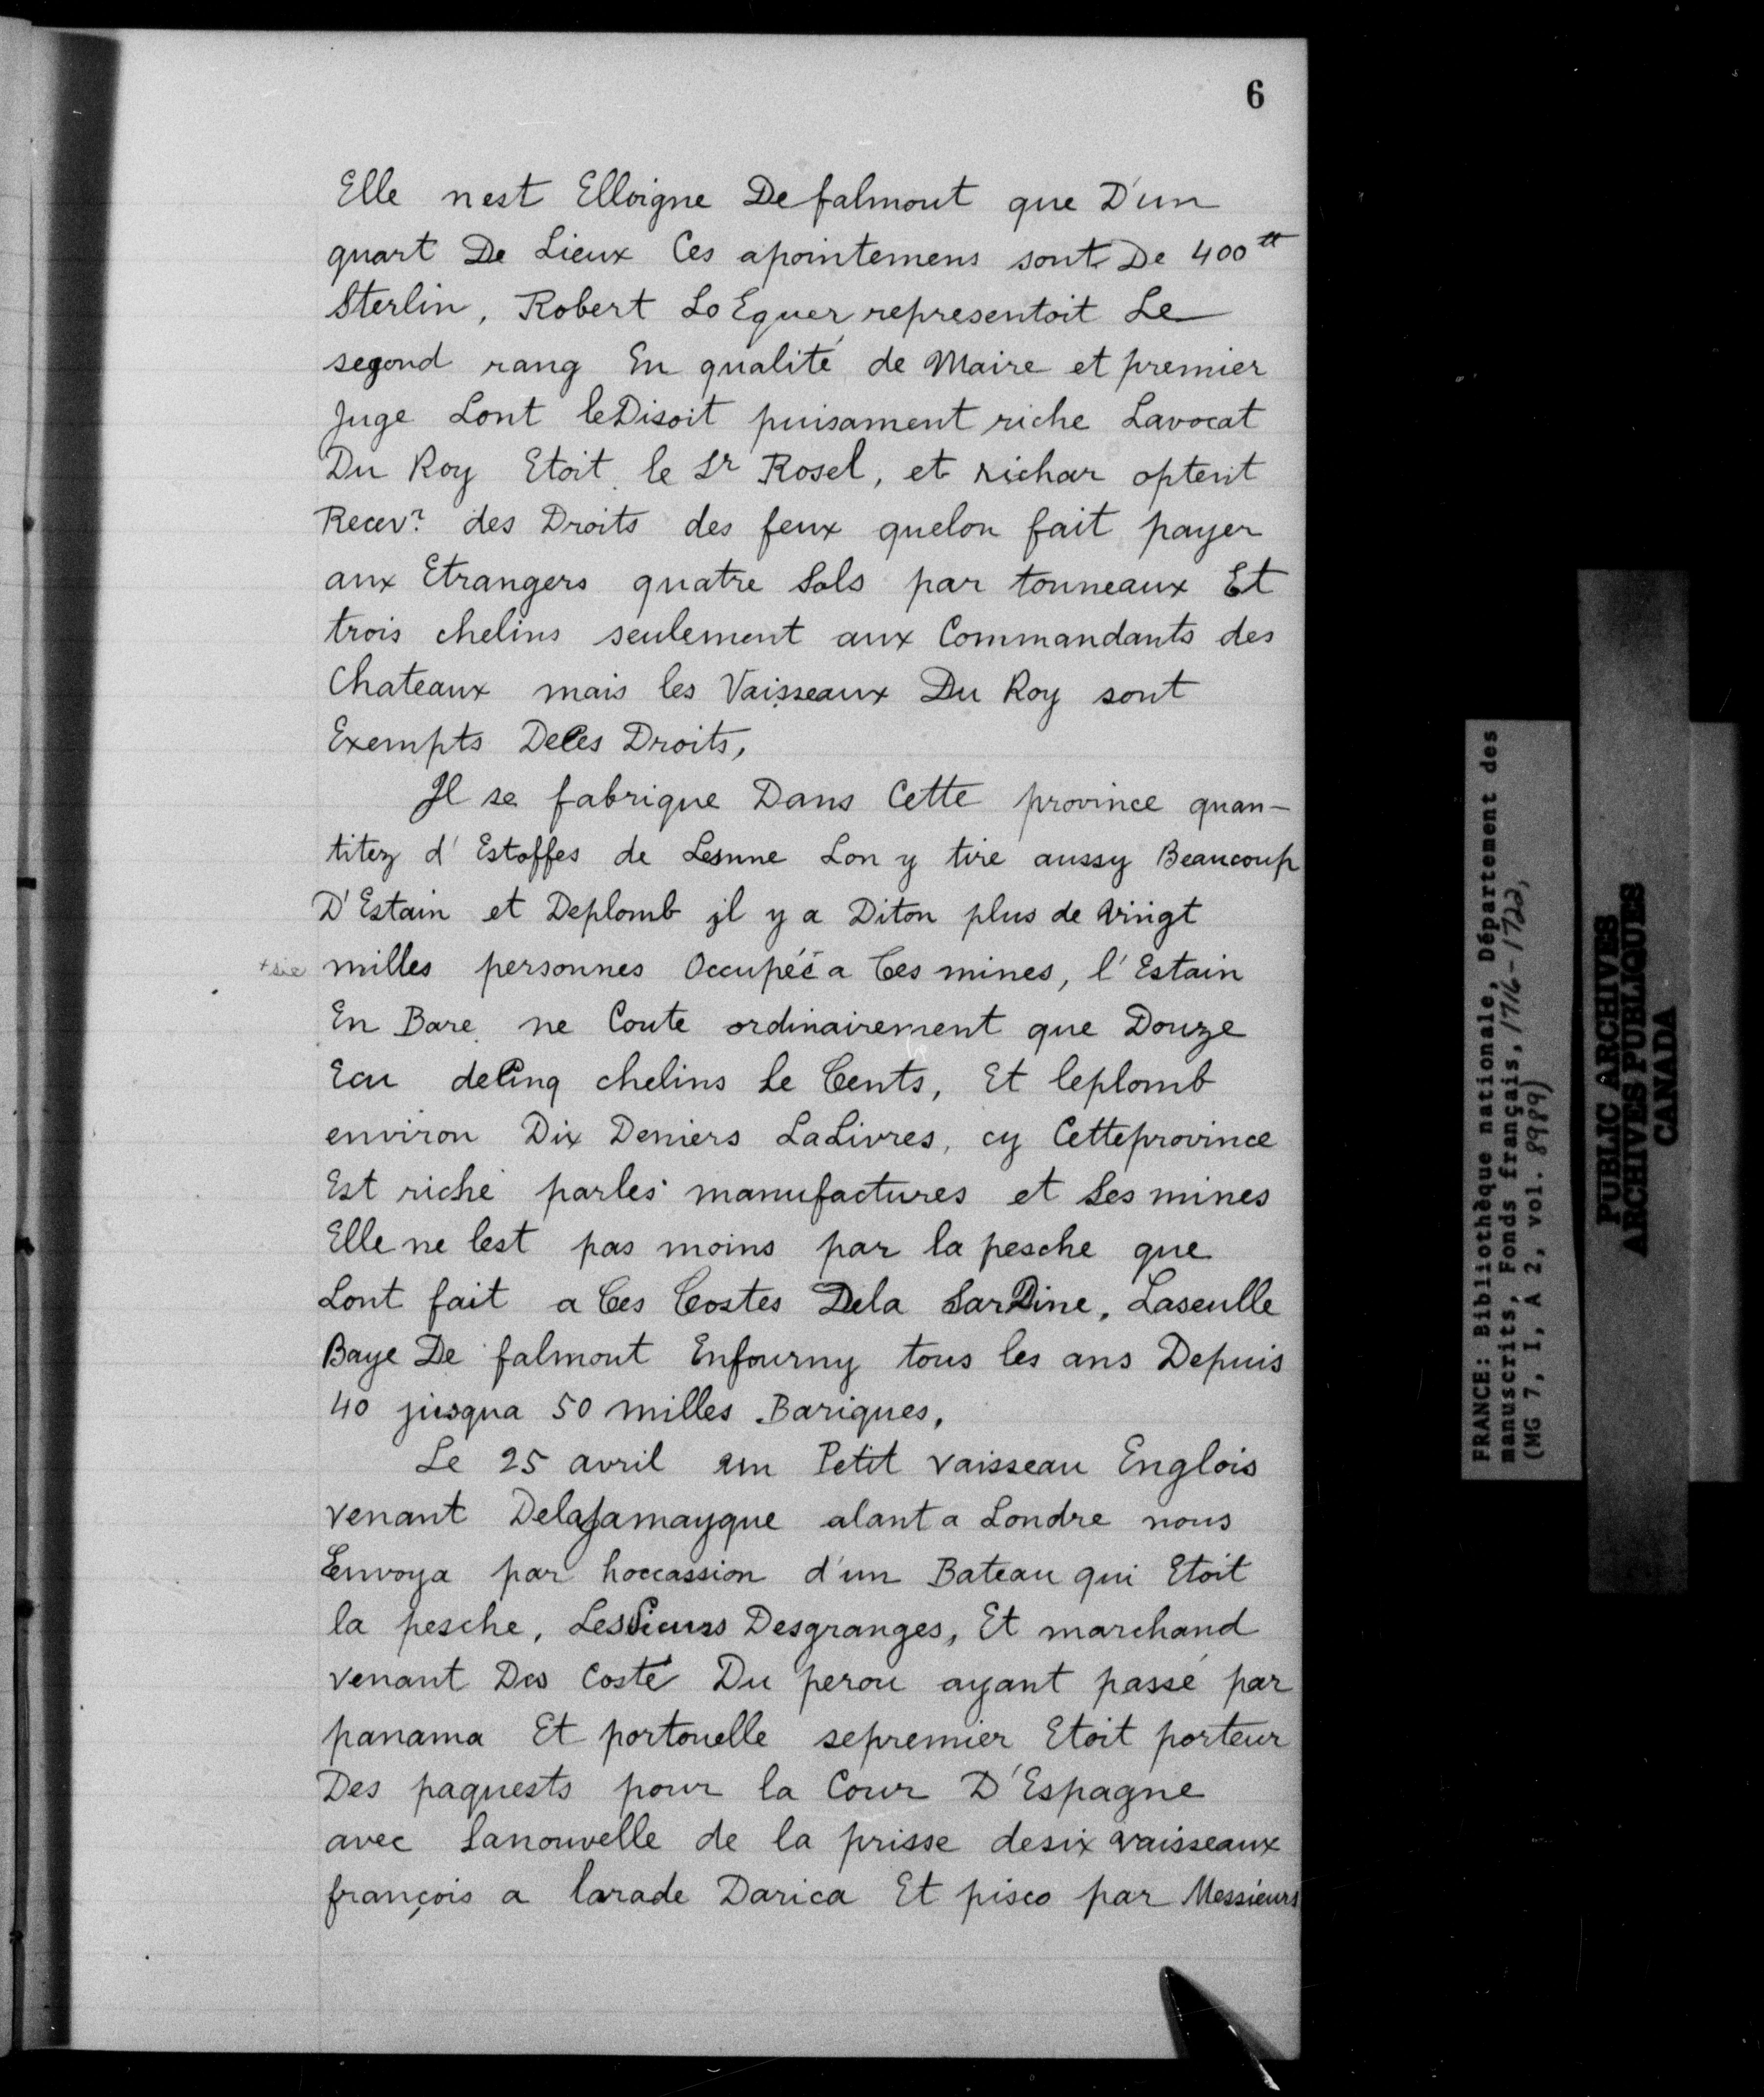 6
Elle nest Elloigne De falmout que D'un
quart De Lieux Ces apointemens sont De 400ᵗᵗ
Sterlin, Robert Lo Equer representoit Le
segond rang En qualité de Maire et premier
Juge Lont le Disoit puisament riche Lavocat
Du Roy Etoit le Sr Rosel, et richar optent
Recevr des Droits des feux quelon fait payer
aux Etrangers quatre Sols par tonneaux Et
trois chelins seulement aux Commandants des
Chateaux mais les Vaisseaux Du Roy sont
Exempts DeCes Droits,
Jl se fabrique Dans Cette province quan-
titez d'Estoffes de Lesnne Lon y tire aussy Beaucoup
D'Estain et Deplomb jl y a Diton plus de Vingt
+sic milles personnes Occupéé a Ces mines, l'Estain
En Bare ne Coute ordinairement que Douze
Ecu deCinq chelins Le Cents, Et leplomb
environ Dix Deniers LaLivres, cy Cetteprovince
Est riche parles manufactures et Ses mines
Elle ne lest pas moins par la pesche que
Lont fait a Ces Costes Dela SarDine, Laseulle
Baye De falmout Enfourny tous les ans Depuis
40 jusqua 50 milles Bariques,
Le 25 avril un Petit vaisseau Englois
venant DelaJamayque alant a Londre nous
Envoya par hoccassion d'un Bateau qui Etoit
la pesche, LesSieurs Desgranges, Et marchand
venant Des Costé Du perou ayant passé par
panama Et portouelle sepremier Etoit porteur
Des paquests pour la Cour D'Espagne
avec Lanouvelle de la prisse desix vaisseaux
françois a larade Darica Et pisco par Messieurs
FRANCE: Bibliothèque nationale, Département des
manuscrits, Fonds français, 1716-1722,
(MG 7, I, A 2, vol. 8989)
PUBLIC ARCHIVES
ARCHIVES PUBLIQUES
CANADA